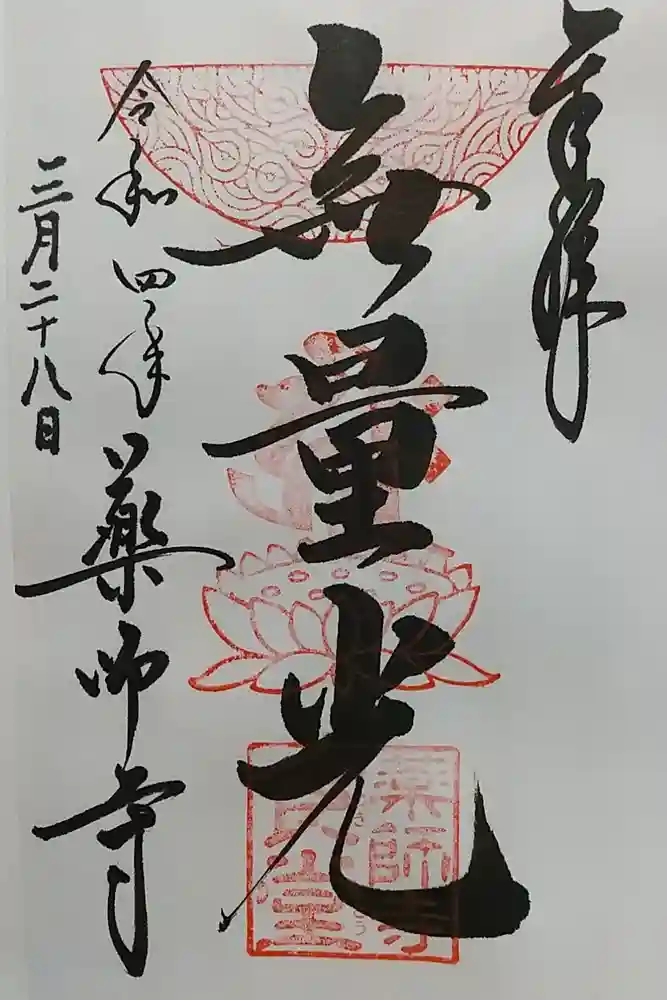 奉拝
無量光
令和四年
三月二十八日
薬師寺
薬師寺